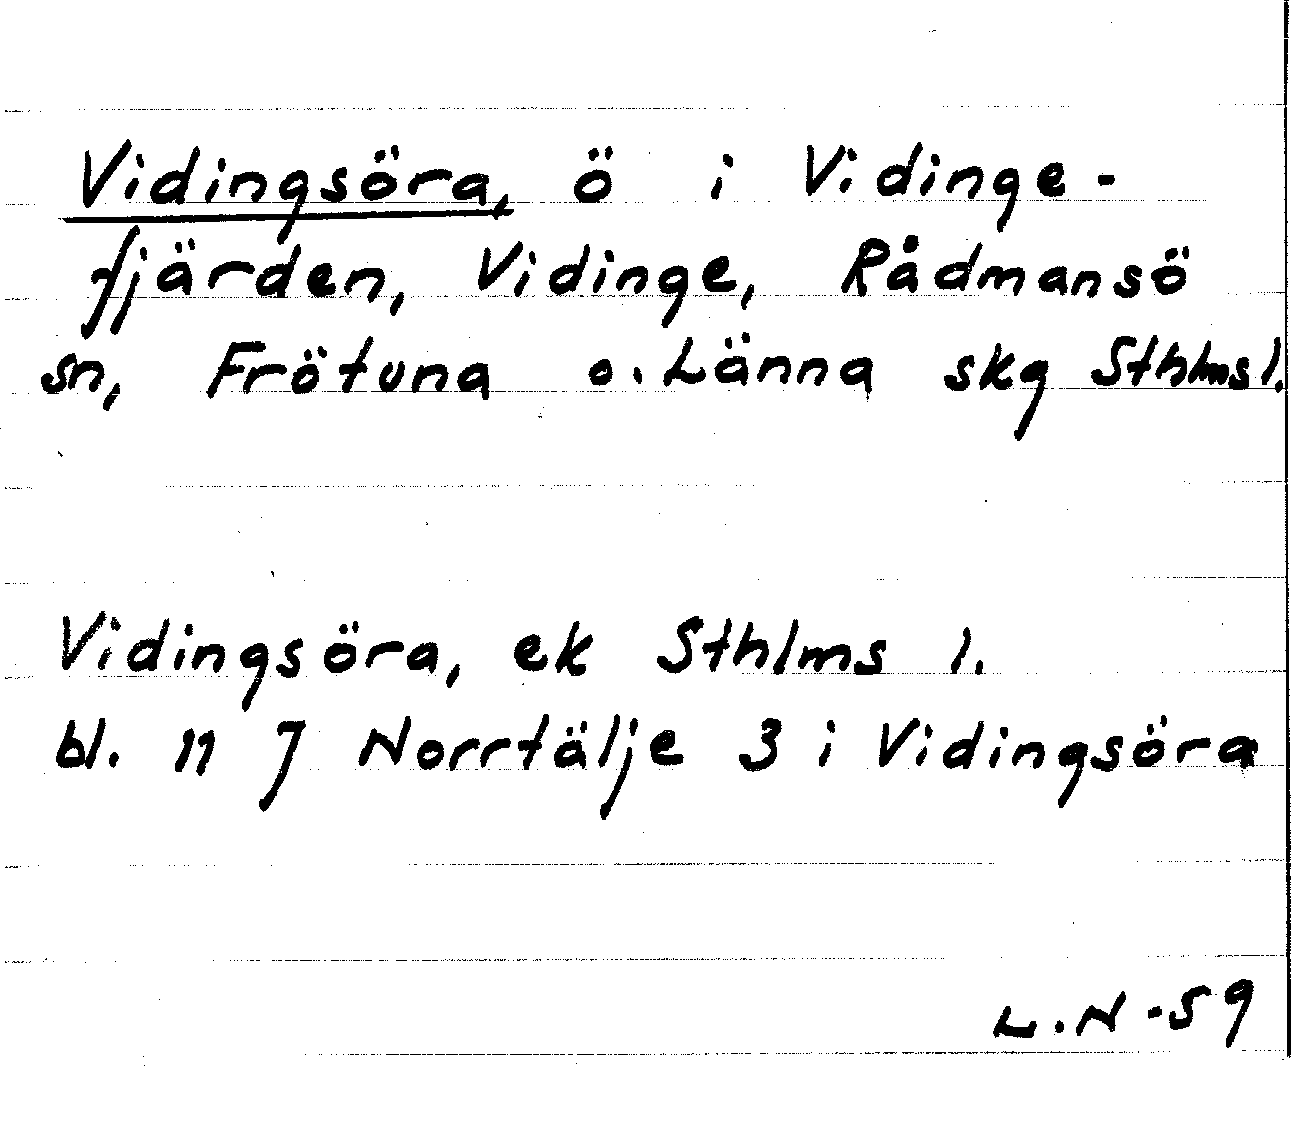 Vidingsöra, ö i Vidinge-
fjärden, Vidinge, Rådmansö
sn, Frötuna o. Länna skg Sthlms l.
Vidingsöra, ek Sthlms l.
bl. 11 J Norrtälje 3 i Vidingsöra
L.N -59